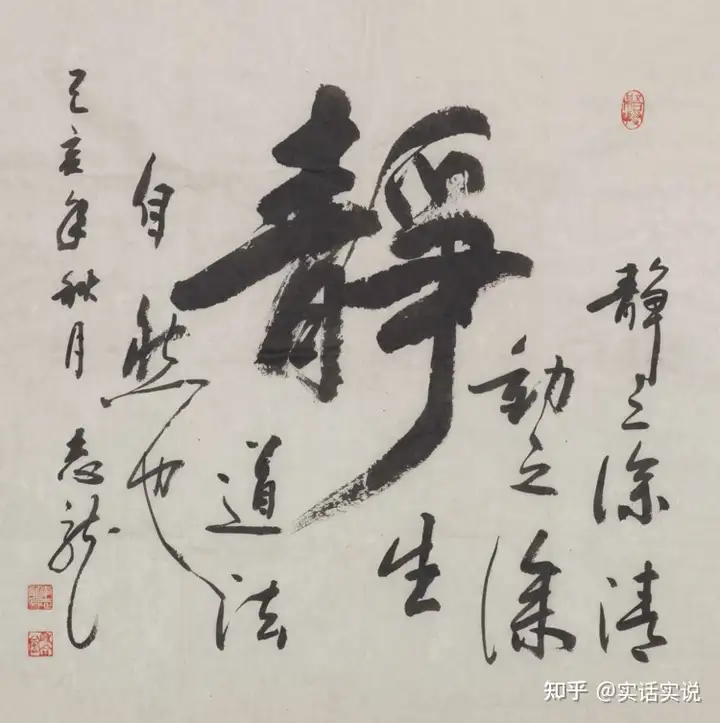 靜
靜之徐清
動之徐
生
道法
自然也
己亥年秋月 志龍
知乎 @实话实说